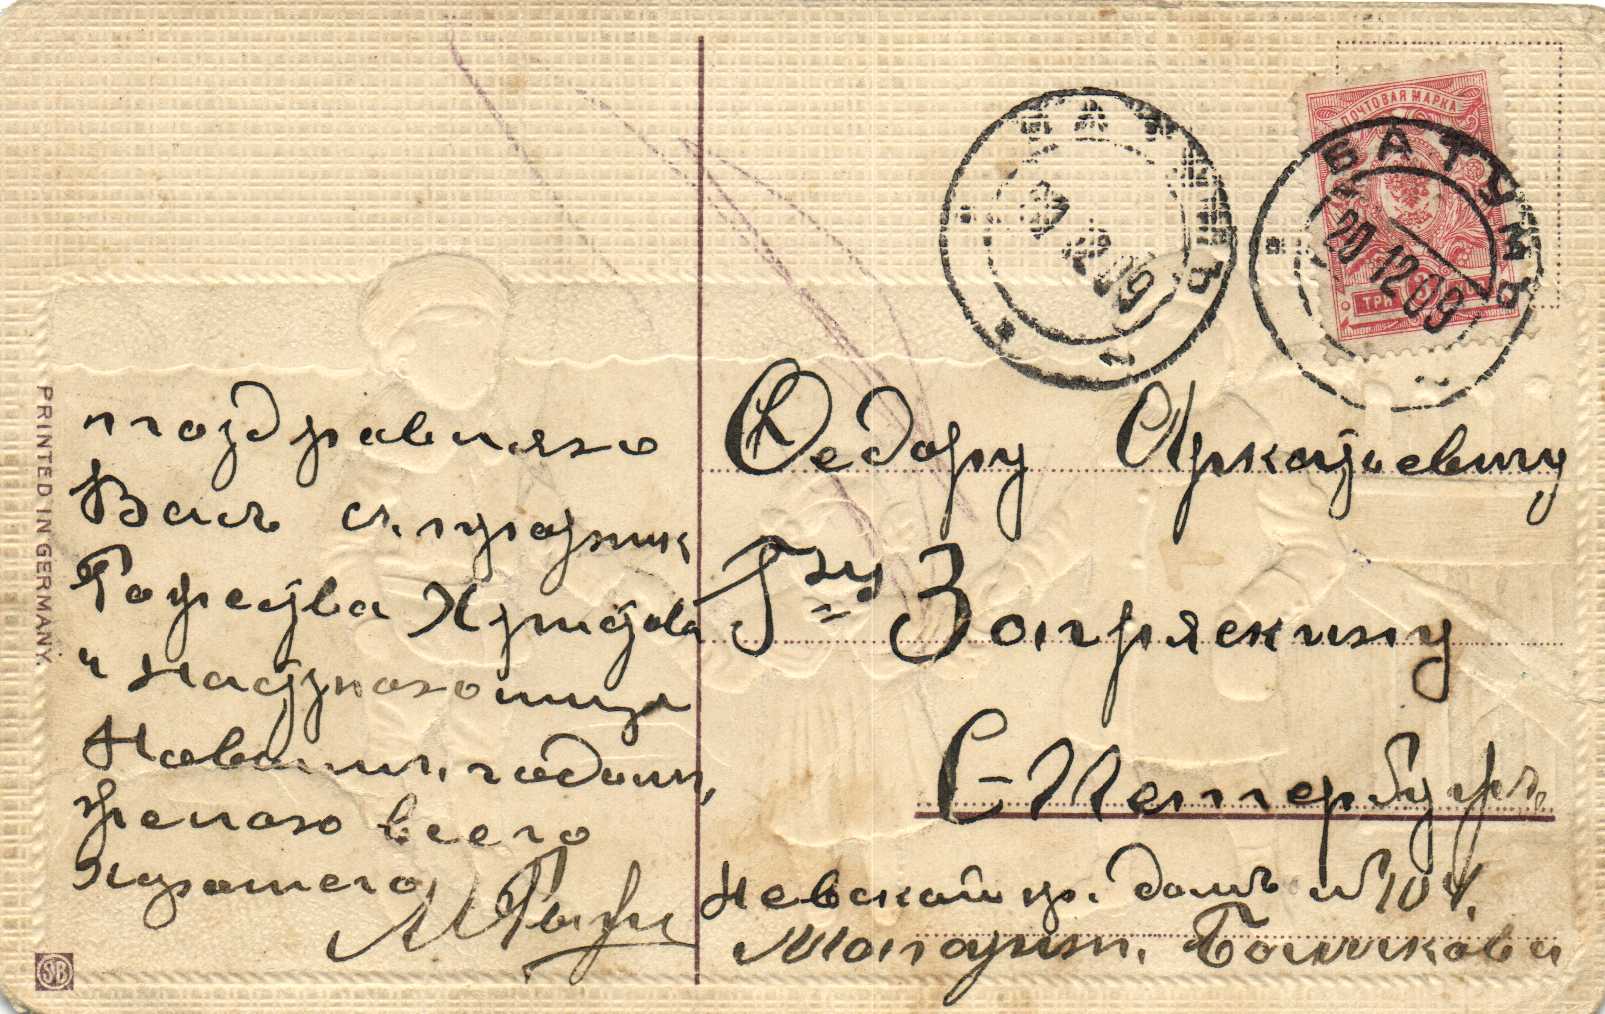 ПОЧТОВАЯ МАРКА
ТРИ
БАТУМЪ
20 12 09
БАТУМЪ
12 09
PRINTED IN GERMANY.
поздравляю
Васъ съ праздник
Рождества Христова
и наступающимъ
Новымъ годомъ,
желаю всего
хорошего
Федору Аркадьевичу
Гну Запряскину
С-Петербургъ,
Невский пр. домъ № 104,
Магазинъ